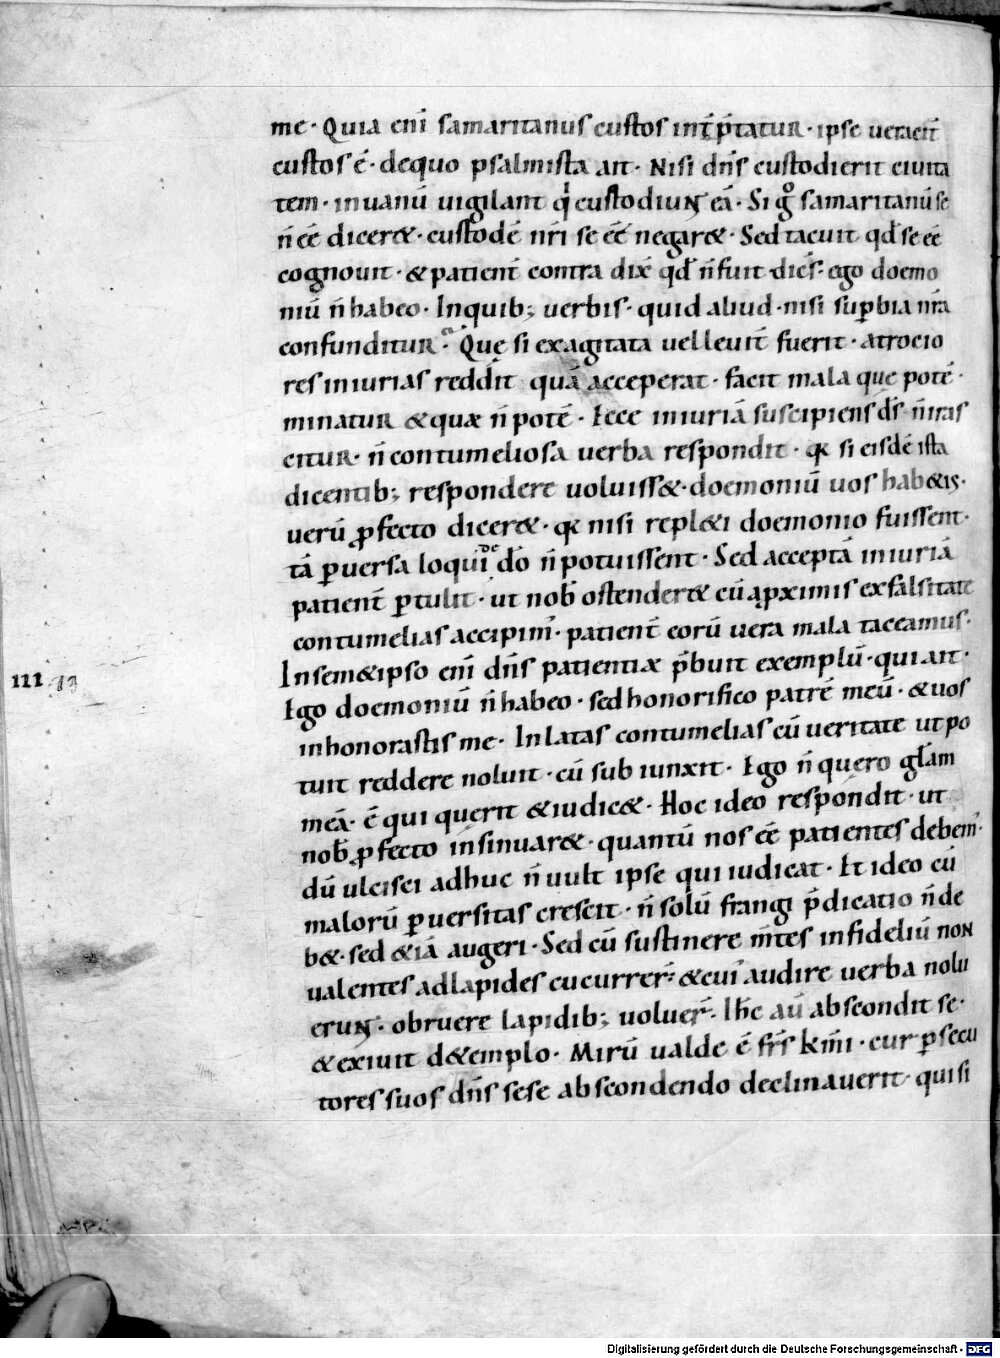 me · Quia eni̅ samaritanus custos int̅p̅tatur · ipse veracit̅
custos e̅ · dequo psalmista ait · Nisi dn̅s custodierit civita
tem · invanu̅ vigilant qͥ custodiuɴ̅t ea̅ · Si gͦ samaritanu̅ se
n̅ ee̅ dicer& · custode̅ nr̅i se ee̅ negar& · Sed tacuit qd̅ se ee̅
cognovit · & patient̅ contra dix̅ qd̅ n̅ fuit dice̅s · ego doemo
niu̅ n̅ habeo · Inquib; verbis · quid aliud · nisi sup̅bia nr̅a
confunditur · Que̜ si exagitata vel levit̅ fuerit · atrocio
res iniurias reddit qua̅ acceperat · facit mala que pote̅ ·
minatur & quæ n̅ pote̅ · Ecce iniuria̅ suscipiens dn̅s n̅ iras
citur · n̅ contumeliosa verba respondit · qꝛ si eisde̅ ista
dicentib; respondere voluiss& · doemoniu̅ vos hab&is ·
veru̅ ꝓfecto dicer& · qꝛ nisi repl&i doemonio fuissent ·
ta̅ ꝑversa loqui de do̅ n̅ potuissent · Sed accepta̅ iniuria̅
patient̅ ꝑtulit · ut nob̅ ostender& cu̅ aꝓximis ex falsitate
contumelias accipim̅ · patient̅ eoru̅ vera mala taceamus ·
III 13
Insem&ipso eni̅ dn̅s patientiæ p̅buit exemplu̅ · qui ait ·
Ego doemoniu̅ n̅ habeo · sed honorifico patre̅ meu̅ · & vos
inhonorastis me · Inlatas contumelias cu̅ veritate ut po
tuit reddere noluit · cu̅ subiunxit · Ego n̅ quero gl̅am
mea̅ · e̅ qui querit & iudic& · Hoc ideo respondit · ut
nob̅ ꝓfecto insinuar& · quantu̅ nos ee̅ patientes debem̅ ·
du̅ ulcisci adhuc n̅ vult ipse qui iudicat · Et ideo cu̅
maloru̅ ꝑversitas crescit · n̅ solu̅ frangi p̅dicatio n̅ de
b& · sed &ia̅ augeri · Sed cu̅ sustinere m̅tes infideliu̅ non
valentes ad lapides cucurrer̅ · & cui̅ audire verba nolu
eruɴt · obruere lapidib; voluer̅ · Ihc̅ au̅ abscondit se ·
& exivit d&emplo · Miru̅ valde e̅ fr̅s km̅i · cur ꝑsecu
tores suos dn̅s sese abscondendo declinaverit · qui si
Digitalisierung gefördert durch die Deutsche Forschungsgemeinschaft - DFG